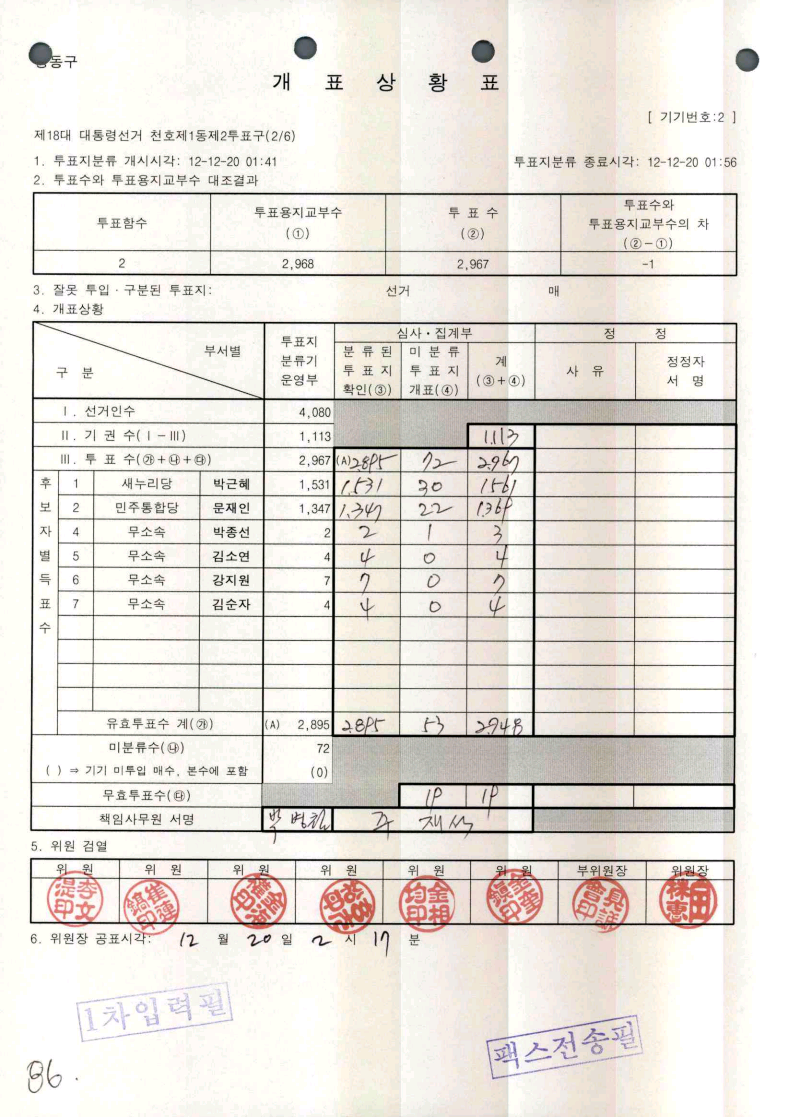 동구
개 표 상 황 표
[ 기기번호:2 ]
제18대 대통령선거 천호제1동제2투표구(2/6)
1. 투표지분류 개시시각: 12-12-20 01:41 투표지분류 종료시각: 12-12-20 01:56
2. 투표수와 투표용지교부수 대조결과
투표함수 투표용지교부수 (①) 투 표 수 (②) 투표수와 투표용지교부수의 차 (②-①)
2 2,968 2,967 -1
3. 잘못 투입·구분된 투표지: 선거 매
4. 개표상황
구 분 부서별 투표지 분류기 운영부 심사·집계부 정 정
분 류 된 투 표 지 확인(③) 미 분 류 투 표 지 개표(④) 계 (③+④) 사 유 정정자 서 명
Ⅰ. 선거인수 4,080
Ⅱ. 기 권 수(Ⅰ-Ⅲ) 1,113 1,113
Ⅲ. 투 표 수(㉮+㉯+㉰) 2,967 (A) 2,895 72 2,967
후보자별득표수
1 새누리당 박근혜 1,531 1,531 30 1,561
2 민주통합당 문재인 1,347 1,347 22 1,369
4 무소속 박종선 2 2 1 3
5 무소속 김소연 4 4 0 4
6 무소속 강지원 7 7 0 7
7 무소속 김순자 4 4 0 4
유효투표수 계(㉮) (A) 2,895 2,895 53 2,948
미분류수(㉯) 72
( ) ⇒ 기기 미투입 매수, 본수에 포함 (0)
무효투표수(㉰) 19 19
책임사무원 서명 주 재식
5. 위원 검열
위 원 위 원 위 원 위 원 위 원 위 원 부위원장 위원장
6. 위원장 공표시각: 12 월 20 일 2 시 17 분
1차입력필
팩스전송필
86.